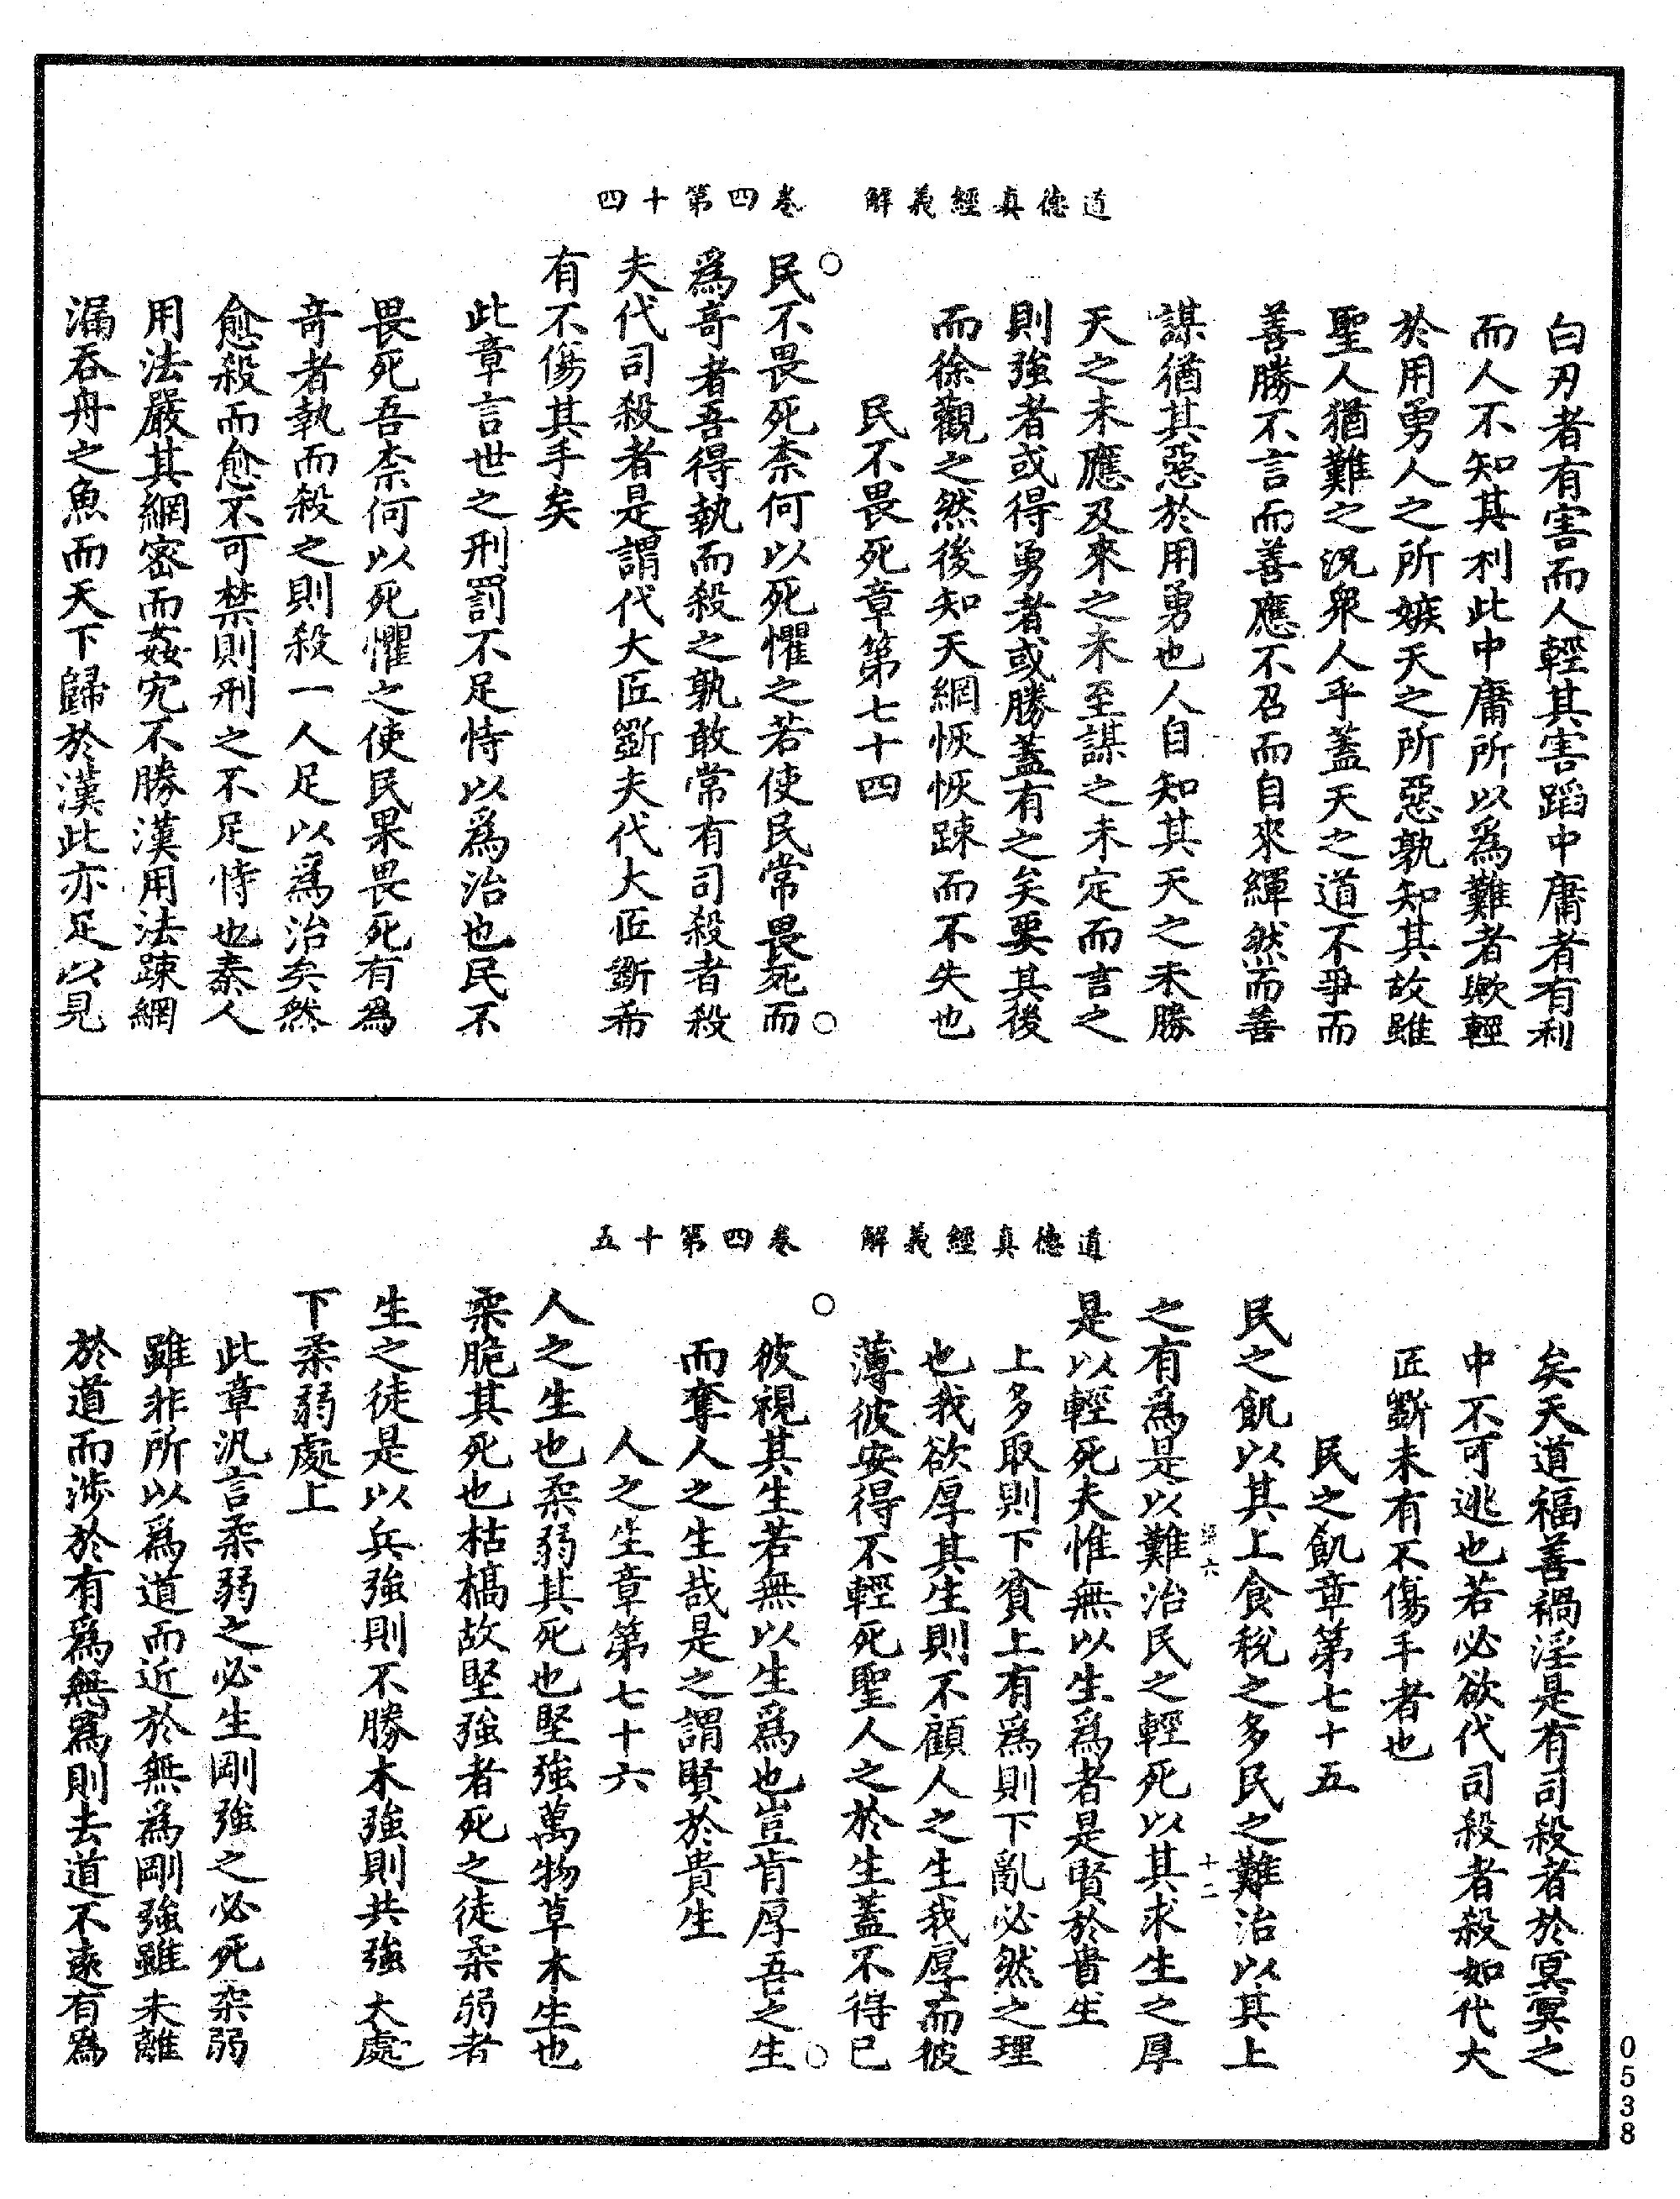 道德真經義解　卷四第十四
白刃者有害而人輕其害蹈中庸者有利
而人不知其利此中庸所以爲難者歟輕
於用勇人之所嫉天之所惡孰知其故雖
聖人猶難之況衆人乎蓋天之道不爭而
善勝不言而善應不召而自來繟然而善
謀猶其惡於用勇也人自知其天之未勝
天之未應及來之未至謀之未定而言之
則強者或得勇者或勝蓋有之矣要其後
而徐觀之然後知天網恢恢踈而不失也
民不畏死章第七十四
民不畏死柰何以死懼之若使民常畏死而
爲竒者吾得執而殺之孰敢常有司殺者殺
夫代司殺者是謂代大匠斲夫代大匠斲希
有不傷其手矣
此章言世之刑罰不足恃以爲治也民不
畏死吾柰何以死懼之使民果畏死有爲
竒者執而殺之則殺一人足以爲治矣然
愈殺而愈不可禁則刑之不足恃也秦人
用法嚴其網密而姦宄不勝漢用法踈網
漏吞舟之魚而天下歸於漢此亦足以見
道德真經義解　卷四第十五
矣天道福善禍淫是有司殺者於冥冥之
中不可逃也若必欲代司殺者殺如代大
匠斲未有不傷手者也
民之飢章第七十五
民之飢以其上食稅之多民之難治以其上
之有爲是以難治民之輕死以其求生之厚
是以輕死夫惟無以生爲者是賢於貴生
上多取則下貧上有爲則下亂必然之理
也我欲厚其生則不顧人之生我厚而彼
薄彼安得不輕死聖人之於生蓋不得已
彼視其生若無以生爲也豈肯厚吾之生
而奪人之生哉是之謂賢於貴生
人之生章第七十六
人之生也柔弱其死也堅強萬物草木生也
柔脆其死也枯槁故堅強者死之徒柔弱者
生之徒是以兵強則不勝木強則共強大處
下柔弱處上
此章汎言柔弱之必生剛強之必死柔弱
雖非所以爲道而近於無爲剛強雖未離
於道而涉於有爲無爲則去道不遠有爲
十二
0538